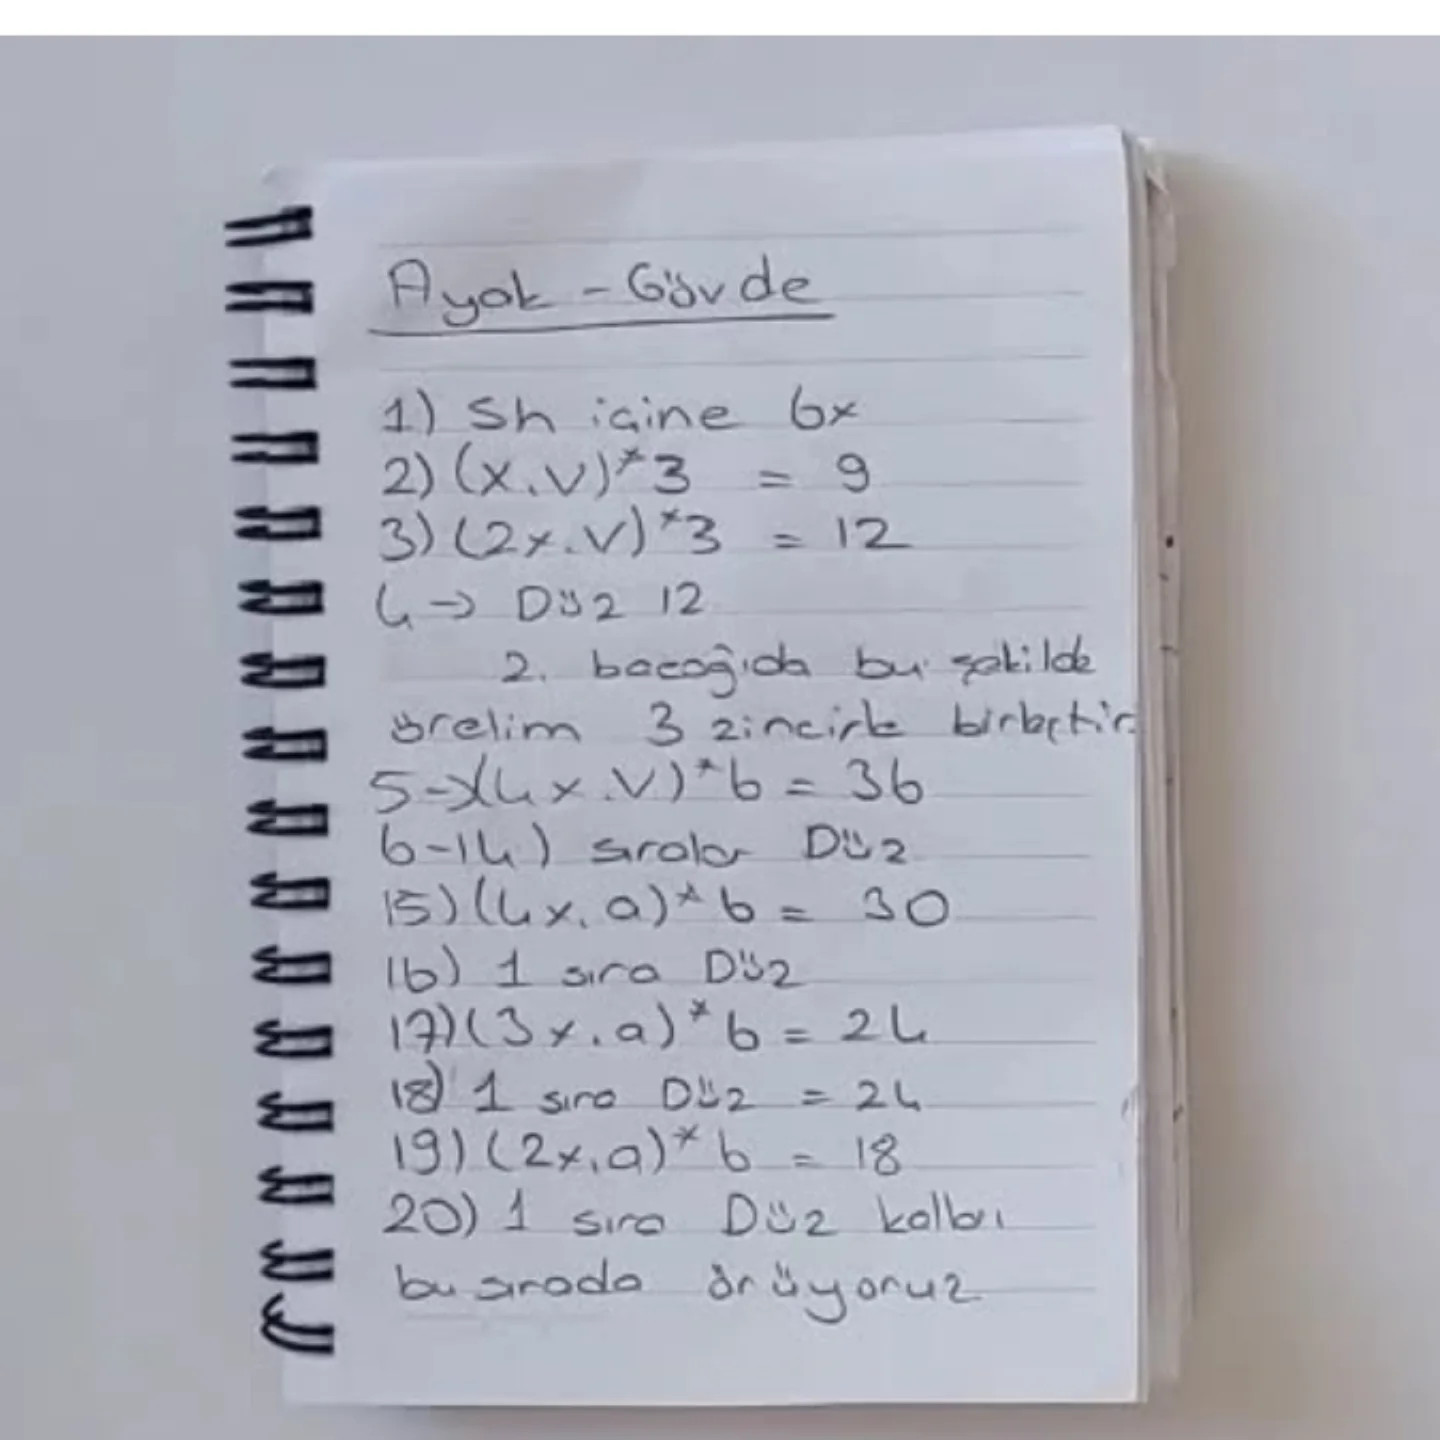 Ayak - Gövde
1) Sh içine 6x
2) (x.v)*3 = 9
3) (2x.v)*3 = 12
4 → Düz 12
2. bacağıda bu şekilde
örelim 3 zincirle birleştir
5→(4x.v)*6 = 36
6-14) sıralar Düz
15) (4x.a)*6 = 30
16) 1 sıra Düz
17) (3x.a)*6 = 24
18) 1 sıra Düz = 24
19) (2x.a)*6 = 18
20) 1 sıra Düz kolları
bu sırada örüyoruz